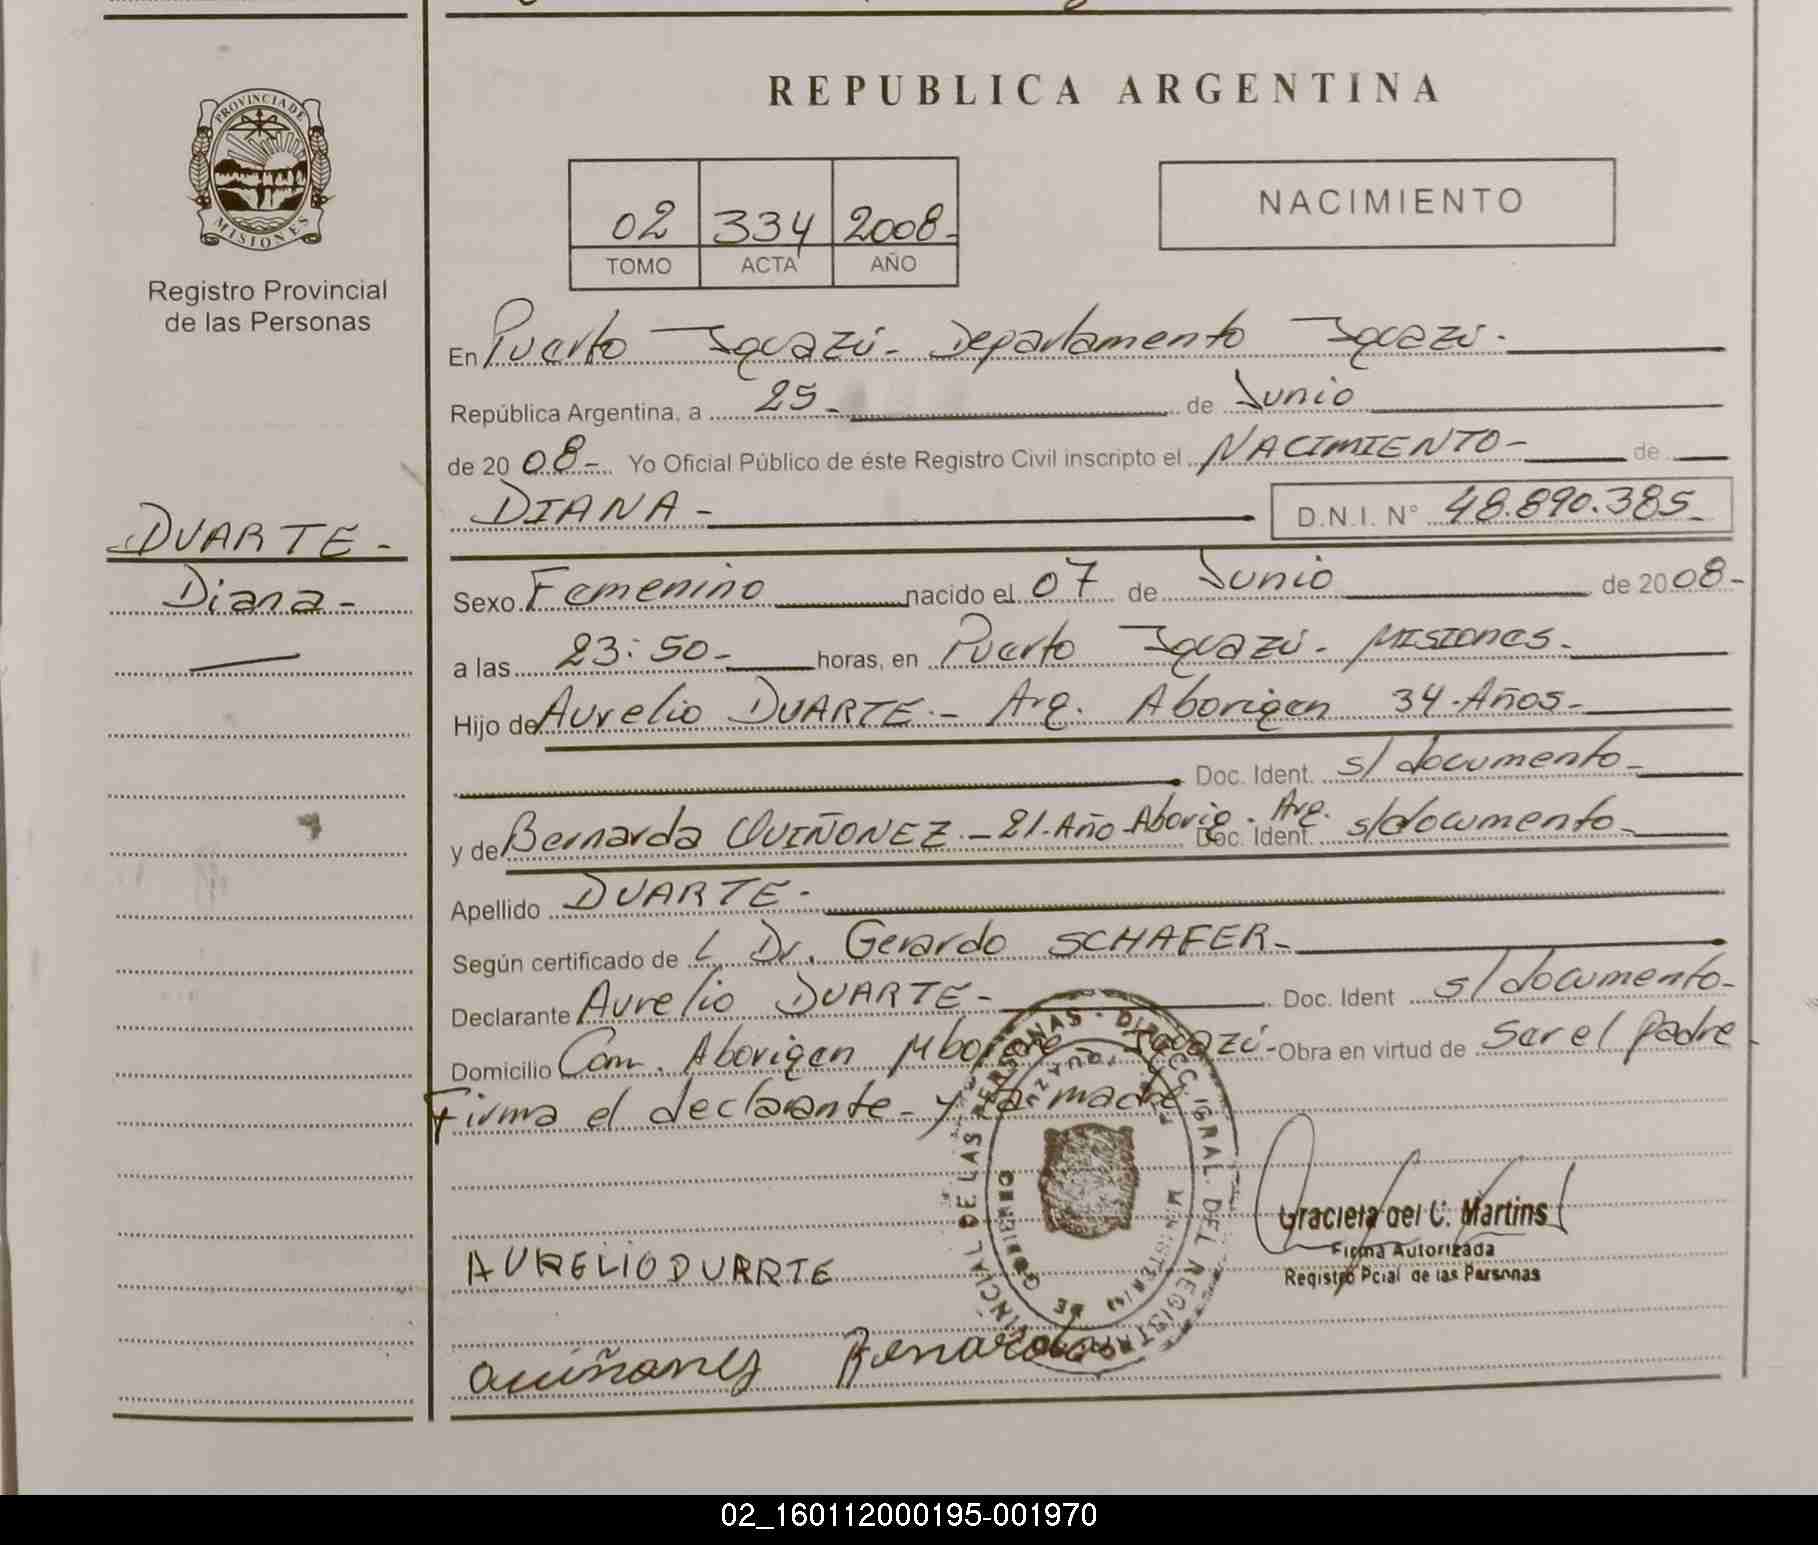 REPUBLICA ARGENTINA
PROVINCIA DE
MISIONES
Registro Provincial
de las Personas
02 334 2008-
TOMO ACTA AÑO
NACIMIENTO
En Puerto Iguazú- Departamento Iguazú-
República Argentina, a 25- de Junio
de 20 08- Yo Oficial Público de éste Registro Civil inscripto el NACIMIENTO- de
DIANA- D.N.I. N° 48.890.385-
DUARTE-
Diana-
Sexo Femenino nacido el 07 de Junio de 2008-
a las 23:50- horas, en Puerto Iguazú- MISIONES-
Hijo de Aurelio DUARTE.- Arg. Aborigen 34-Años-
Doc. Ident. s/documento-
y de Bernarda QUIÑONEZ-21-Año-Aborig. Arg. Doc. Ident. s/documento-
Apellido DUARTE-
Según certificado de L Dr. Gerardo SCHAFER-
Declarante Aurelio DUARTE- Doc. Ident s/documento-
Domicilio Com. Aborigen Mbororé- Iguazú- Obra en virtud de Ser el padre
Firma el declarante- y la madre
Graciela del C. Martins
Firma Autorizada
Registro Pcial de las Personas
AURELIO DUARTE
02_160112000195-001970